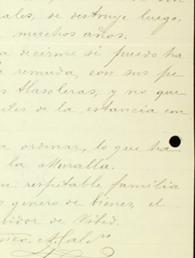 ales, se destruye luego,
muchos años.
a decirme si puedo ha
la remuda, con sus pe
s Tlasoleras, y no que
ntes de la estancia con
a ordenar, lo que ha
la Muralla.
respetable familia
genero de bienes, el
vidor de Usted.